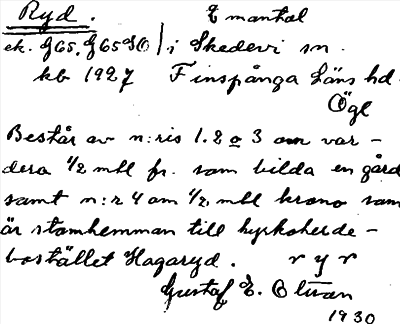 Ryd. 2 mantal
ek. J65. J65SO/i Skedevi sn.
kb 1927 Finspånga läns hd.
Ögl
Består av n:ris 1. 2 o 3 om var-
dera 1/2 mtl fr. som bilda en gård
samt n:r 4 om 1/2 mtl krono som
är stomhemman till kyrkoherde-
bostället Hagaryd. r y r
Gustaf E.
1930